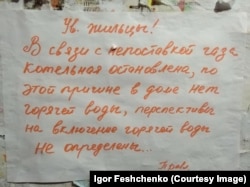 Ув. жильцы!
В связи с непоставкой газа
котельная остановлена, по
этой причине в доме нет
горячей воды, перспективы
на включение горячей воды
не определены...
Igor Feshchenko (Courtesy Image)